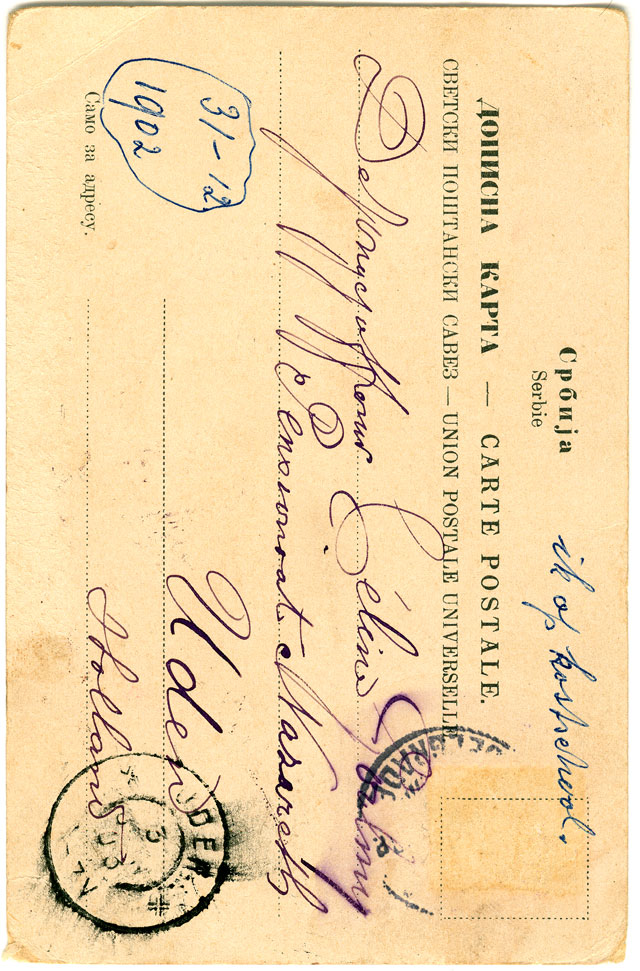 Србија
Serbie
ik op kostschool.
ДОПИСНА КАРТА — CARTE POSTALE.
СВЕТСКИ ПОШТАНСКИ САВЕЗ — UNION POSTALE UNIVERSELLE
BELGRADE
Céline
Pensionnat Nazareth
Uden
Holland
Само за адресу.
31-12
1902
UDEN
3
03